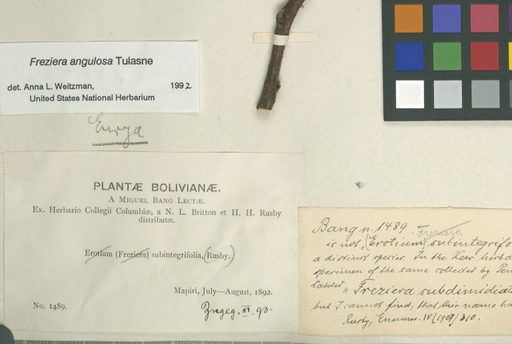 Freziera angulosa Tulasne
det. Anna L. Weitzman, 1992.
United States National Herbarium
Eurya
PLANTÆ BOLIVIANÆ.
A MIGUEL BANG LECTÆ.
Ex. Herbario Collegii Columbiæ, a N. L. Britton et H. H. Rusby
distributæ.
Erotium (Freziera) subintegrifolia, (Rusby.)
Mapiri, July—August, 1892.
No. 1489.
Bang n. 1489 Freziera
is not (Erotium) subintegrifo
a distinct species. In the Kew herba
specimen of the same collected by
labeled "Freziera subdimidiat
but I cannot find, that this name ha
Rusby, Enumer. IV (1907) 310.